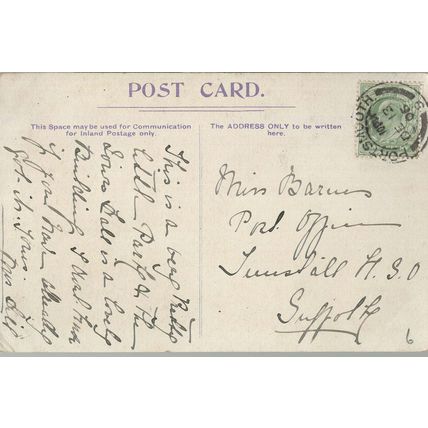 POST CARD.
This Space may be used for Communication
for Inland Postage only.
The ADDRESS ONLY to be written
here.
This is a very Pretty
little Park & The
Town Hall is a lovely
Building I dont know
if you have already
got it. Yours
Miss Barnes
Post Office
Tunstall H.S.O
Suffolk
6
PORTSMOUTH